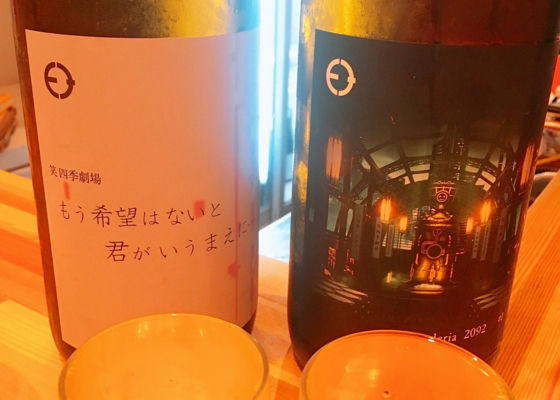 笑四季劇場
もう希望はないと
君がいうまえに
2092